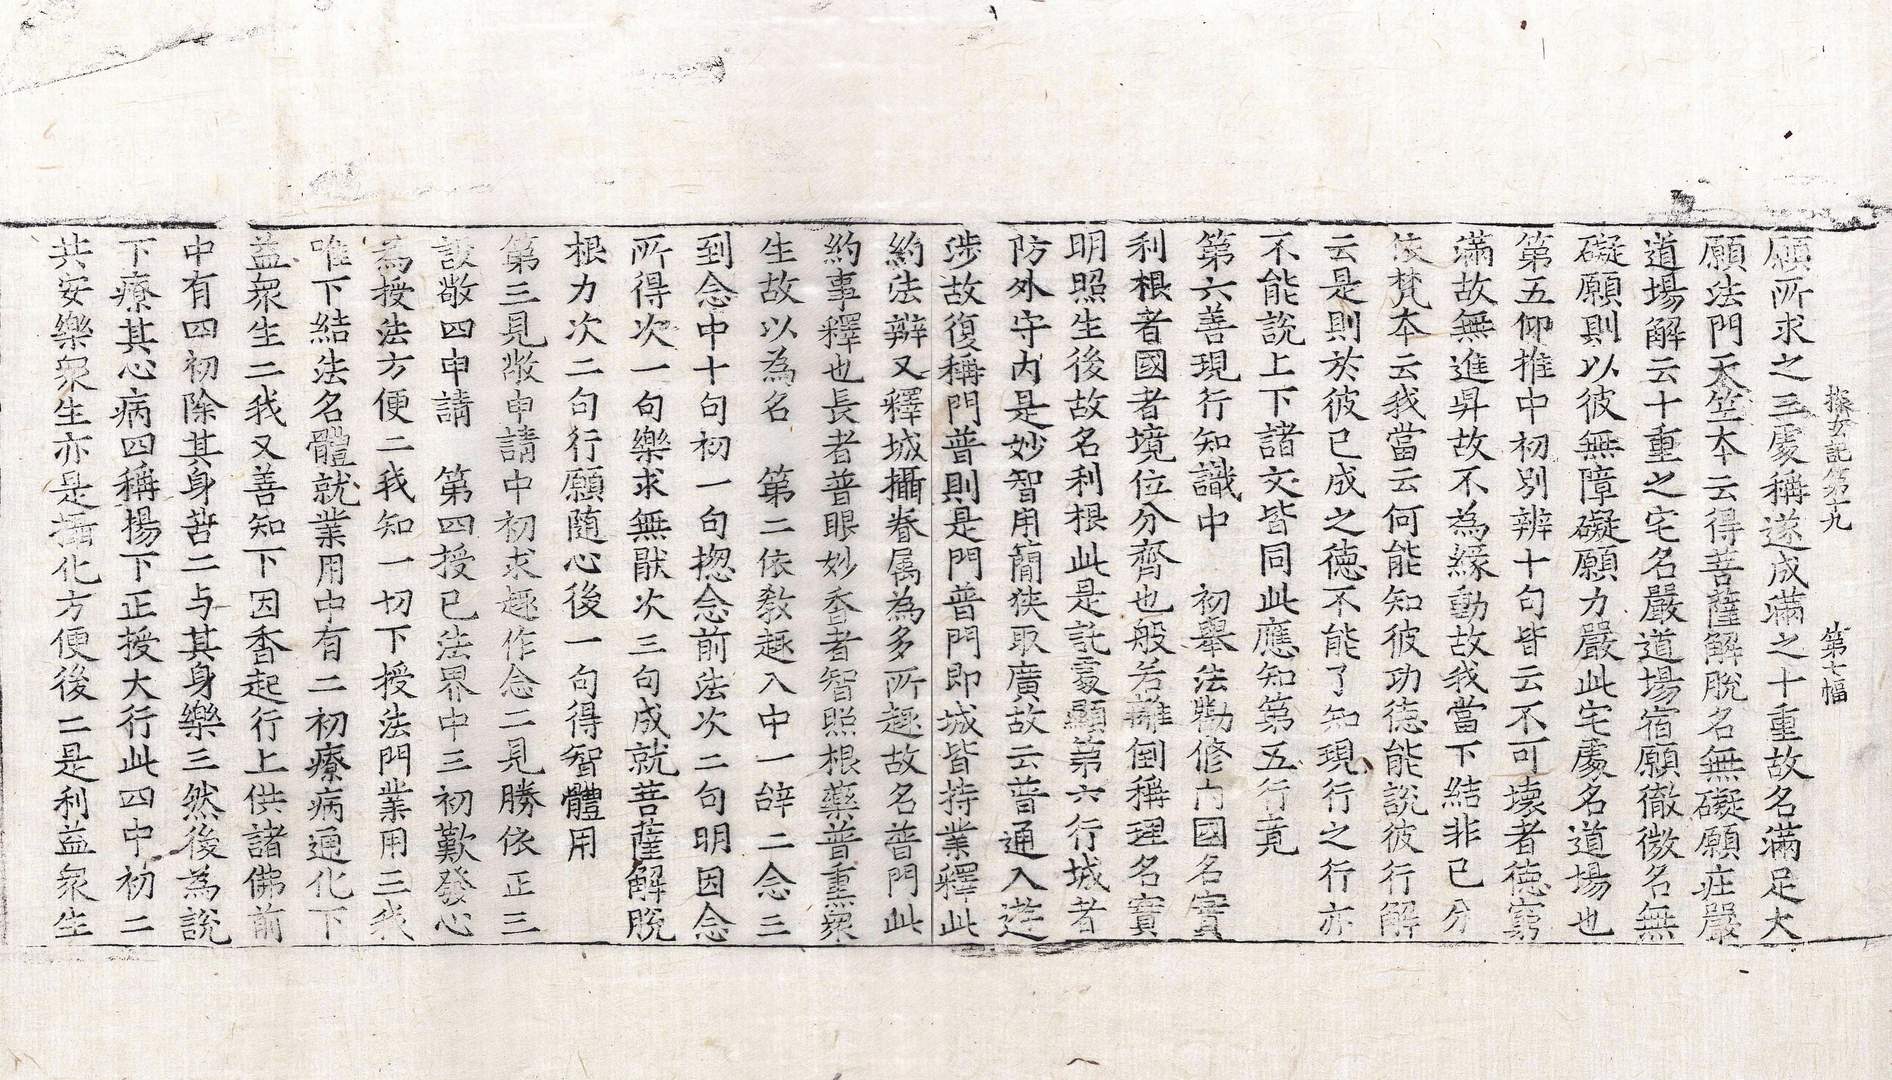 探玄記第十九　第七幅
願所求之三處稱遂成滿之十重故名滿足大
願法門天竺本云得菩薩解脫名無礙願庄嚴
道場解云十重之宅名嚴道場宿願徹微名無
礙願則以彼無障礙願力嚴此宅處名道場也
第五仰推中初別辨十句皆云不可壞者德窮
滿故無進昇故不為緣動故我當下結非已分
依梵本云我當云何能知彼功德能說彼行解
云是則於彼已成之德不能了知現行之行亦
不能說上下諸文皆同此應知第五行竟
第六善現行知識中　初舉法勸修內國名實
利根者國者境位分齊也般若離倒稱理名實
明照生後故名利根此是託處顯第六行城者
防外守內是妙智用簡狹取廣故云普通入遊
涉故復稱門普則是門普門即城皆持業釋此
約法辨又釋城攝眷屬為多所趣故名普門此
約事釋也長者普眼妙香者智照根藥普熏衆
生故以為名　第二依教趣入中一辞二念三
到念中十句初一句揔念前法次二句明因念
所得次一句樂求無猒次三句成就菩薩解脫
根力次二句行願随心後一句得智體用
第三見敬申請中初求趣作念二見勝依正三
設敬四申請　第四授已法界中三初歎發心
為授法方便二我知一切下授法門業用三我
唯下結法名體就業用中有二初療病通化下
益衆生二我又善知下因香起行上供諸佛前
中有四初除其身苦二与其身樂三然後為說
下療其心病四稱揚下正授大行此四中初二
共安樂衆生亦是攝化方便後二是利益衆生